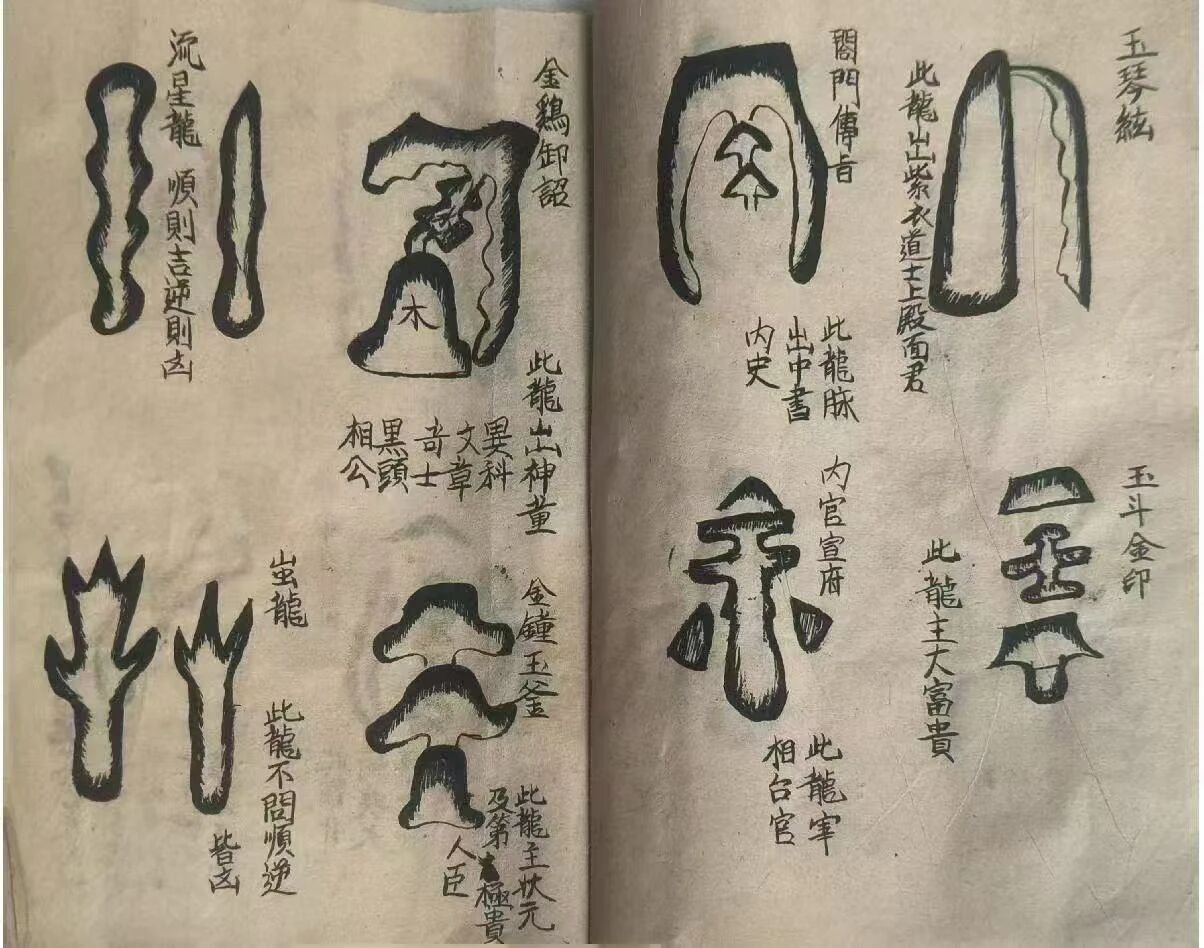 玉琴絃
此龍出紫衣道士上殿面君
閤門傳旨
此龍脉
出中書
内史
玉斗金印
此龍主大富貴
内官宣府
此龍宰
相台官
金鷄卸詔
木
此龍出神童
異科
文章
奇士
黑頭
相公
金鐘玉釜
此龍主狀元
及第極貴
人臣
流星龍 順則吉逆則凶
虽龍
此龍不問順逆
皆凶